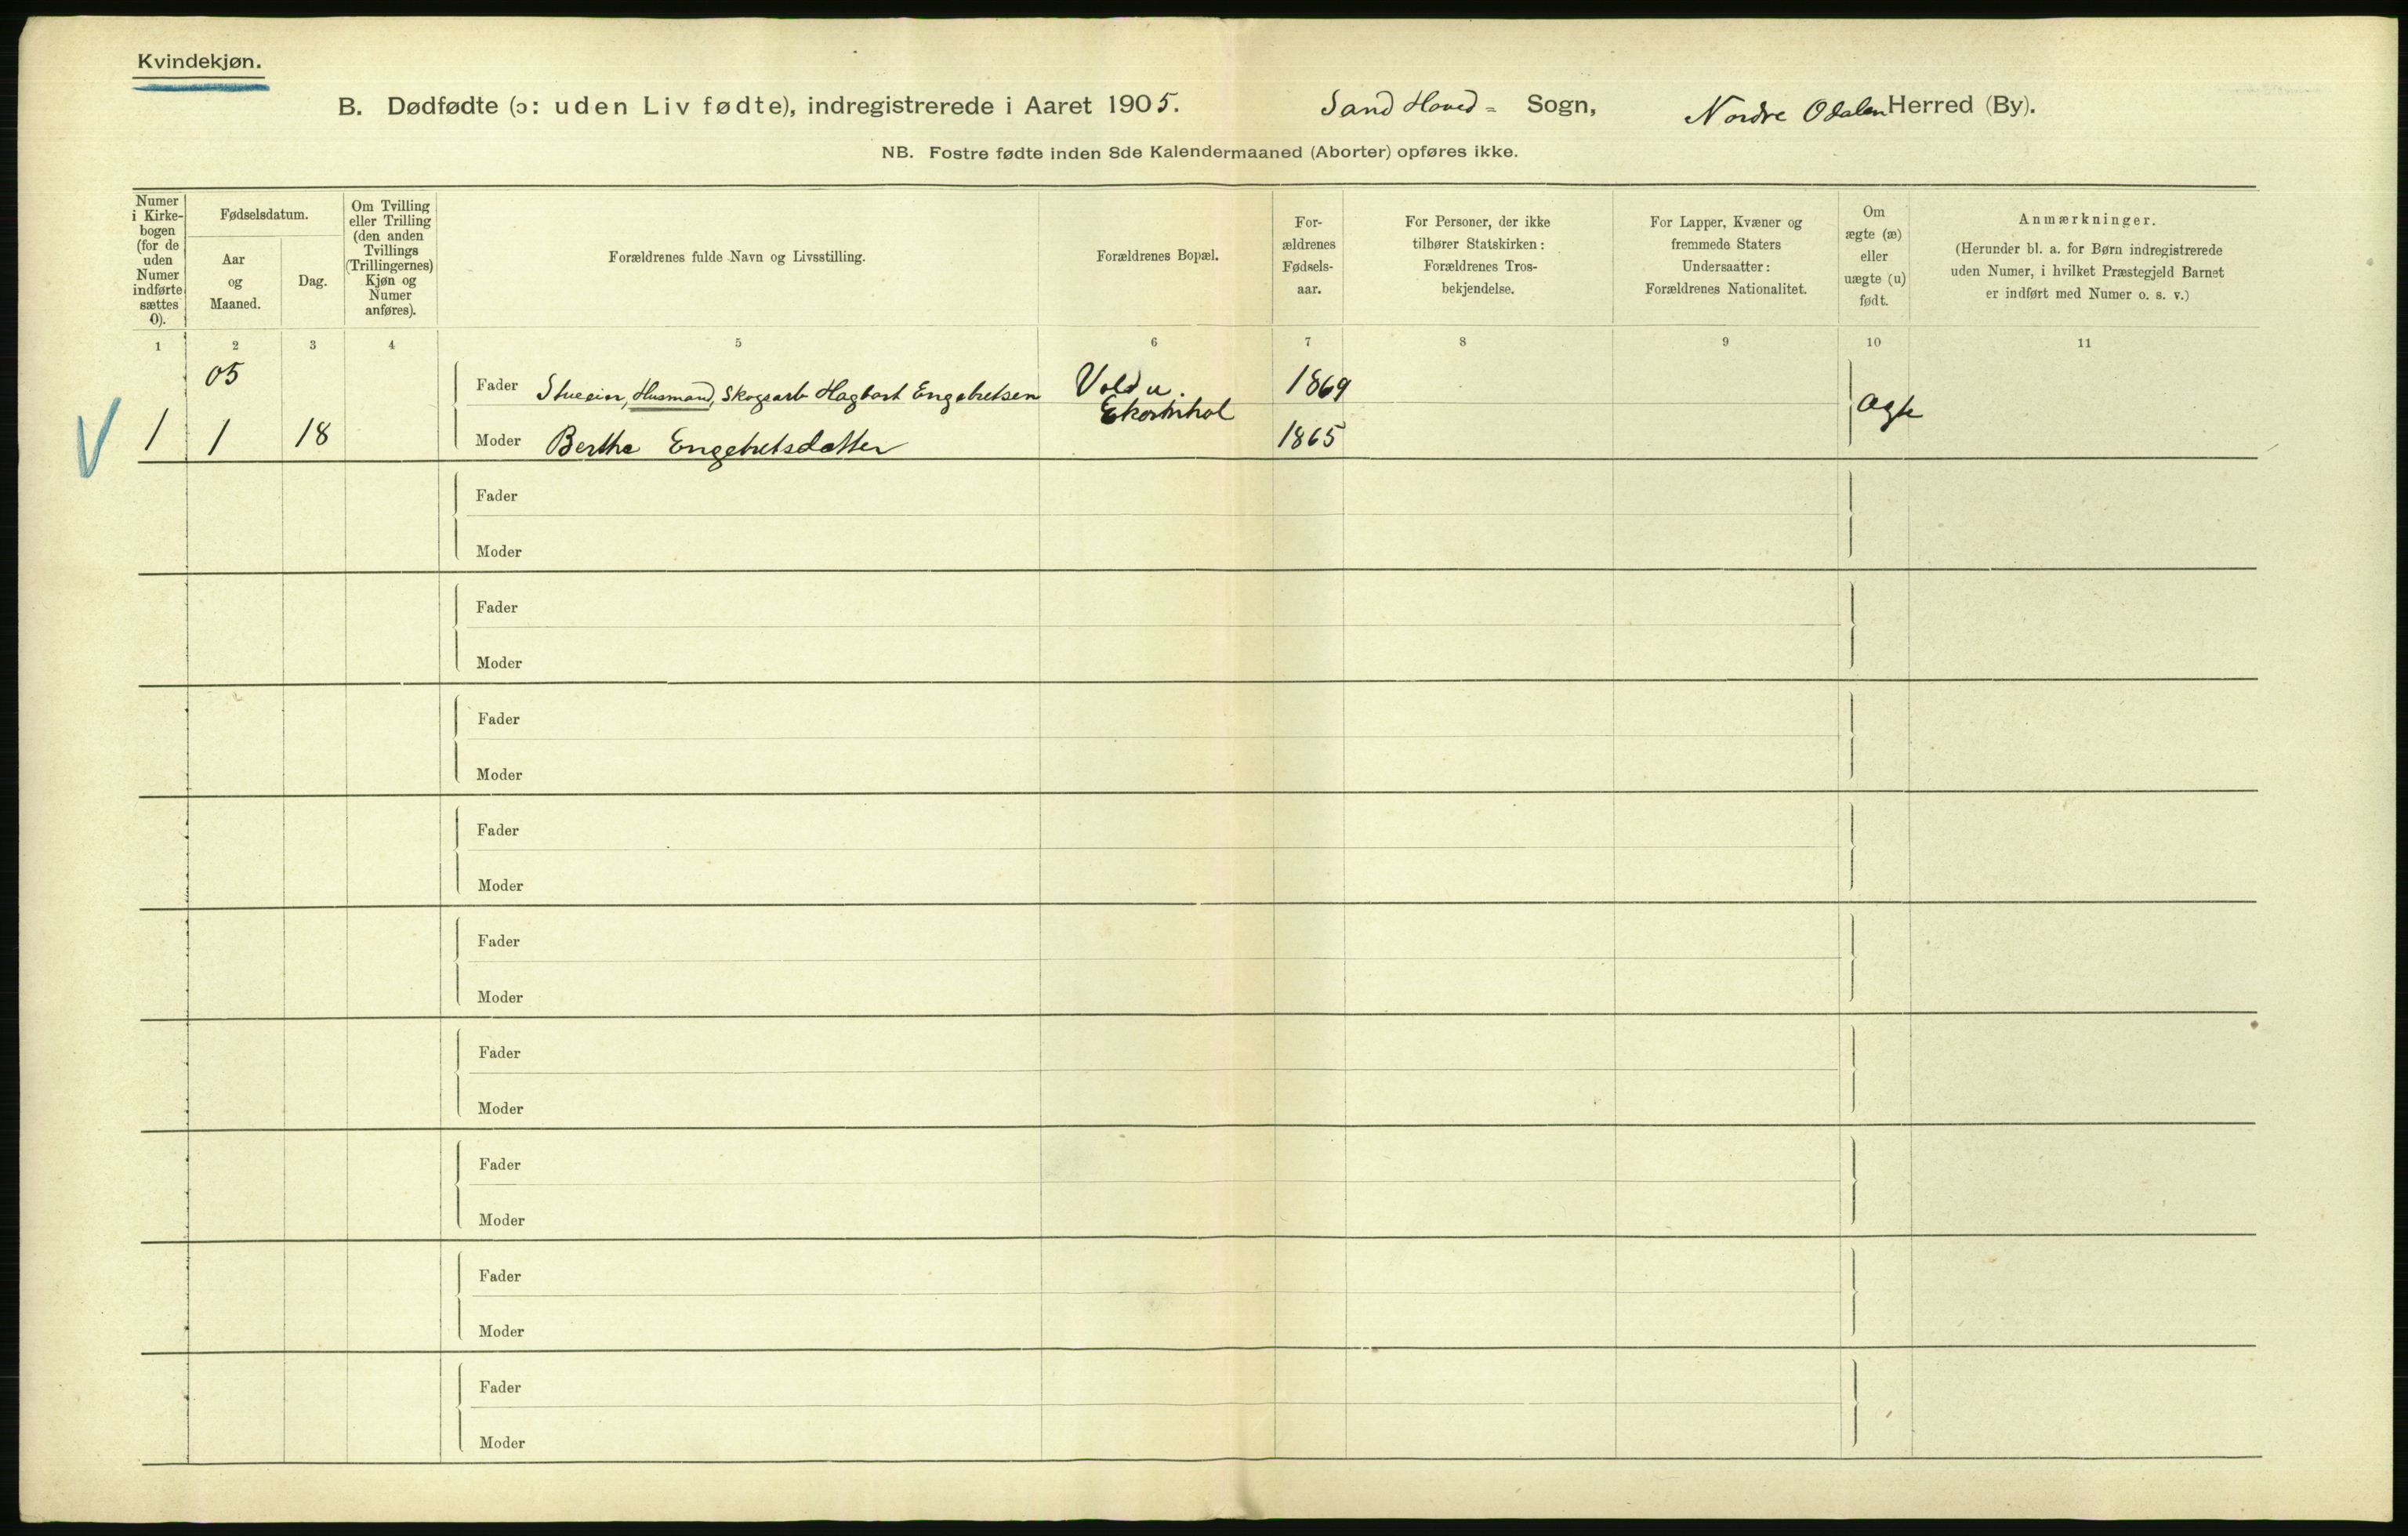 Kvindekjøn.
B. Dødfødte (ɔ: uden Liv fødte), indregistrerede i Aaret 1905. Sand Hoved- Sogn, Nordre Odalen Herred (By).
NB. Fostre fødte inden 8de Kalendermaaned (Aborter) opføres ikke.
Numer
i Kirke-
bogen
(for de
uden
Numer
indførte
sættes
0).
Fødselsdatum.
Aar
og
Maaned.
Dag.
Om Tvilling
eller Trilling
(den anden
Tvillings
(Trillingernes)
Kjøn og
Numer
anføres).
Forældrenes fulde Navn og Livsstilling.
Forældrenes Bopæl.
For-
ældrenes
Fødsels-
aar.
For Personer, der ikke
tilhører Statskirken:
Forældrenes Tros-
bekjendelse.
For Lapper, Kvæner og
fremmede Staters
Undersaatter:
Forældrenes Nationalitet.
Om
ægte (æ)
eller
uægte (u)
født.
Anmærkninger.
(Herunder bl. a. for Børn indregistrerede
uden Numer, i hvilket Præstegjeld Barnet
er indført med Numer o. s. v.)
1 2 3 4 5 6 7 8 9 10 11
05
Fader Stueeier, Husmand, Skogsarb Hagbart Engebretsen Vold u. 1869
Ekornhol ægte
V 1 1 18 Moder Berthe Engebretsdatter 1865
Fader
Moder
Fader
Moder
Fader
Moder
Fader
Moder
Fader
Moder
Fader
Moder
Fader
Moder
Fader
Moder
Fader
Moder